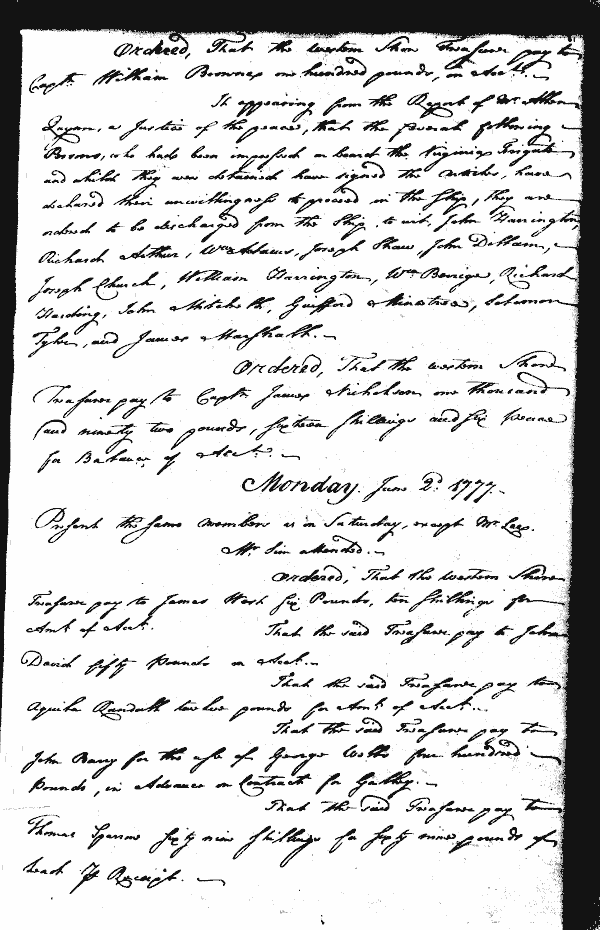 Ordered, That the western Shore Treasurer pay to
Capt. William Brownex one hundred pounds, on Acct.
It appearing from the Report of Mr. Allen
Quynn, a Justice of the peace, that the several following
Persons, who had been impressed on board the Virginia Frigate
and whilst they were detained have signed the Articles, have
declared their unwillingness to proceed in the Ship, they are
ordered to be discharged from the Ship, to wit, John Harrington,
Richard Arthur, Wm. Addams, Joseph Shaw, John Dellam,
Joseph Church, William Harrington, Wm. Berrige, Richard
Harding, John Mitchell, Guifford Minetree, Solomon
Tyler, and James Marshall.
Ordered, That the western Shore
Treasurer pay to Capt. James Nicholson one thousand
and ninety two pounds, sixteen shillings and six pence
for Balance of Acct.
Monday June 2d. 1777.
Present the same members as on Saturday, except Mr. Lee.
Mr. Sim attended.
Ordered, That the western Shore
Treasurer pay to James West Six Pounds, ten shillings for
Amt. of Acct.
That the said Treasurer pay to John
David fifty Pounds on Acct.
That the said Treasurer pay to
Aquila Randall twelve pounds for Amt. of Acct.
That the said Treasurer pay to
John Barry for the use of George Wells four hundred
Pounds, in Advance on Contract for Galley.
That the said Treasurer pay to
Thomas Sparrow sixty nine shillings for sixty nine pounds of
Lead P Receipt.